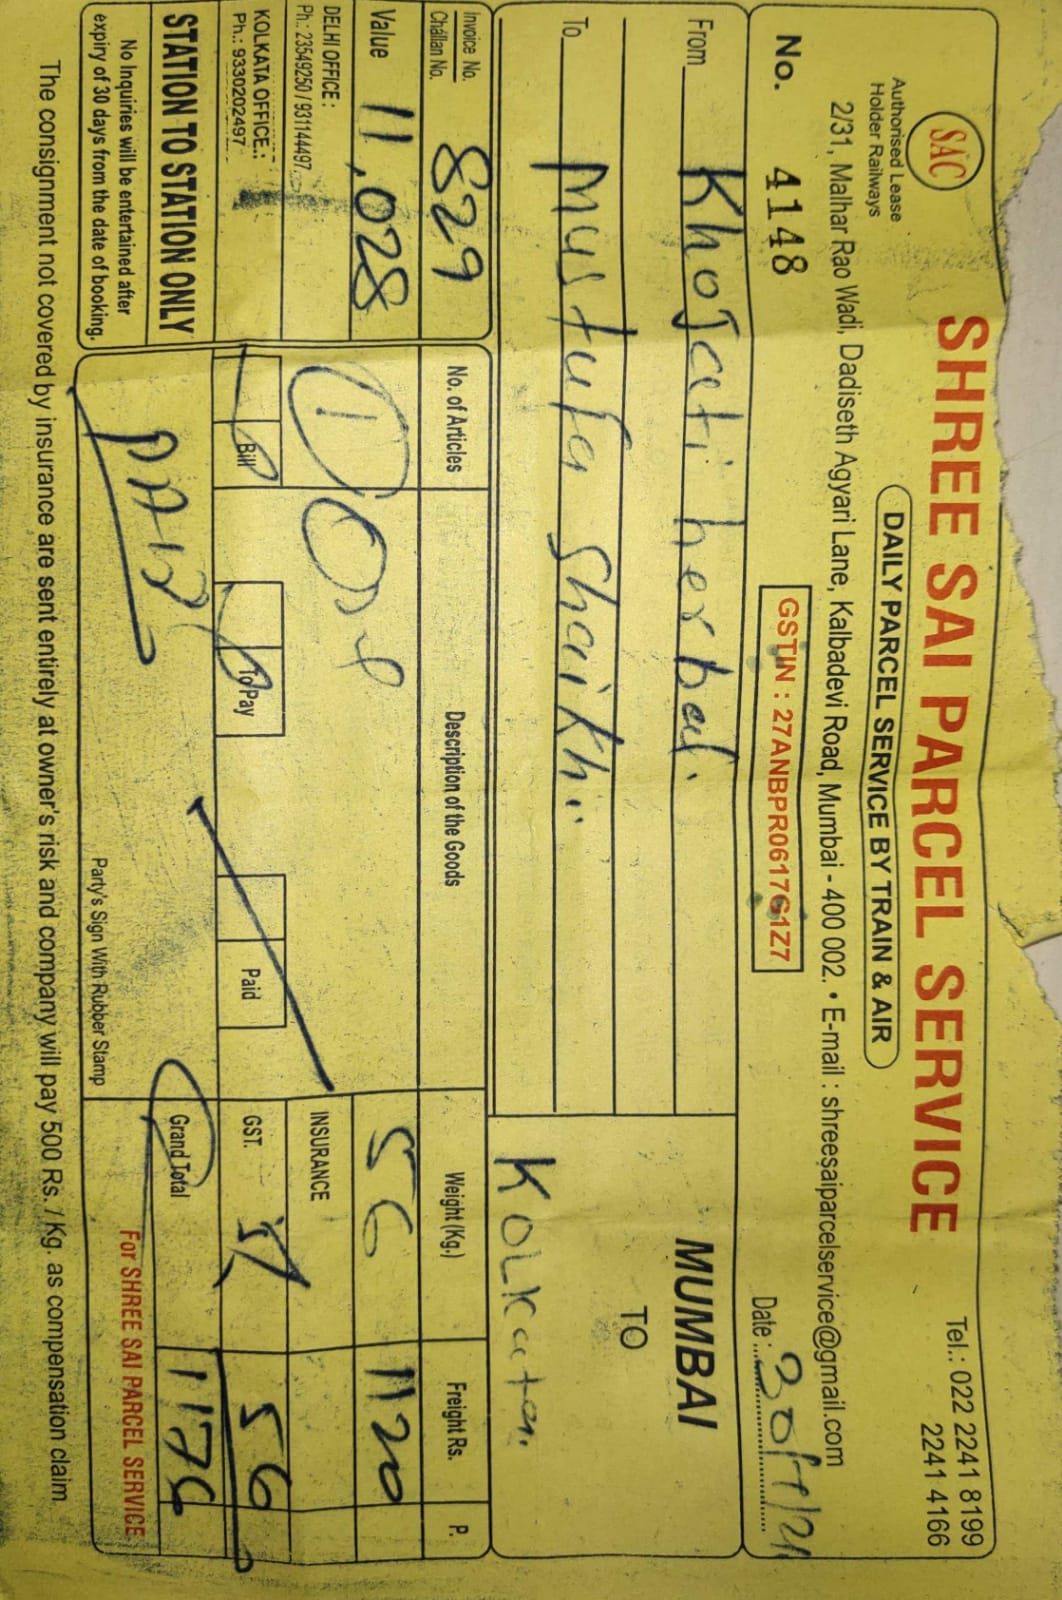 SHREE SAI PARCEL SERVICE
Tel.: 022 2241 8199
2241 4166
SAC
Authorised Lease
Holder Railways
DAILY PARCEL SERVICE BY TRAIN & AIR
2/31, Malhar Rao Wadi, Dadiseth Agyari Lane, Kalbadevi Road, Mumbai - 400 002. • E-mail : shreesaiparcelservice@gmail.com
No. 4148
GSTIN : 27ANBPR0617G1Z7
Date :
From Khojati herbal.
MUMBAI
TO
To Mustufa Shaikh.
Kolkatta.
Invoice No.
Challan No.
829
No. of Articles
Description of the Goods
Weight (Kg.)
Freight Rs.
P.
Value 11,028
1 One
56
1120
DELHI OFFICE :
Ph.: 23549250 / 931144497
INSURANCE
KOLKATA OFFICE.:
Ph.: 9330202497
Bill
To Pay
Paid
GST.
56
STATION TO STATION ONLY
PAID
Grand Total
1176
No Inquiries will be entertained after
expiry of 30 days from the date of booking.
Party's Sign With Rubber Stamp
For SHREE SAI PARCEL SERVICE
The consignment not covered by insurance are sent entirely at owner's risk and company will pay 500 Rs. / Kg. as compensation claim